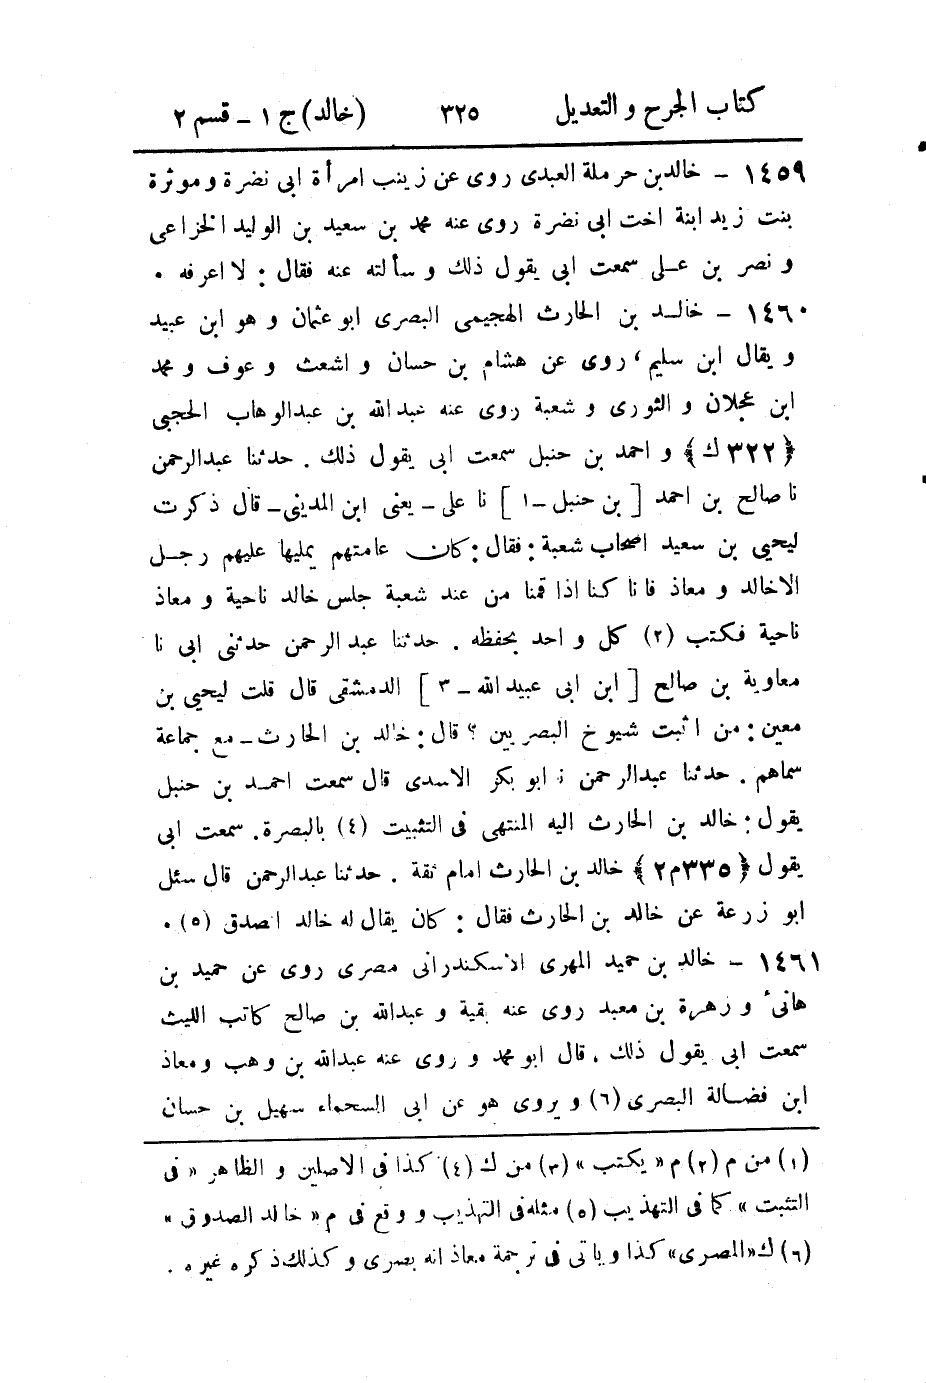 كتاب الجرح و التعديل ٣٢٥ (خالد) ج ١ - قسم ٢
١٤٥٩ - خالد بن حرملة العبدى روى عن زينب امرأة ابى نضرة و موثرة
بنت زيد ابنة اخت ابى نضرة روى عنه محمد بن سعيد بن الوليد الخزاعى
و نصر بن على سمعت ابى يقول ذلك و سألته عنه فقال : لا اعرفه .
١٤٦٠ - خالد بن الحارث الهجيمى البصرى ابو عثمان و هو ابن عبيد
و يقال ابن سليم ، روى عن هشام بن حسان و اشعث و عوف و محمد
ابن عجلان و الثورى و شعبة روى عنه عبدالله بن عبدالوهاب الحجبى
﴿٣٢٢ ك﴾ و احمد بن حنبل سمعت ابى يقول ذلك . حدثنا عبدالرحمن
نا صالح بن احمد [ بن حنبل - ١ ] نا على - يعنى ابن المدينى - قال ذكرت
ليحيى بن سعيد اصحاب شعبة : فقال : كان عامتهم يمليها عليهم رجل
الا خالد و معاذ فانا كنا اذا قمنا من عند شعبة جلس خالد ناحية و معاذ
ناحية فكتب (٢) كل و احد بحفظه . حدثنا عبد الرحمن حدثنى ابى نا
معاوية بن صالح [ ابن ابى عبيدالله - ٣ ] الدمشقى قال قلت ليحيى بن
معين : من اثبت شيوخ البصريين ؟ قال : خالد بن الحارث - مع جماعة
سماهم . حدثنا عبدالرحمن نا ابو بكر الاسدى قال سمعت احمد بن حنبل
يقول : خالد بن الحارث اليه المنتهى فى التثبيت (٤) بالبصرة . سمعت ابى
يقول ﴿٣٣٥ م ٢﴾ خالد بن الحارث امام ثقة . حدثنا عبدالرحمن قال سئل
ابو زرعة عن خالد بن الحارث فقال : كان يقال له خالد الصدق (٥) .
١٤٦١ - خالد بن حميد المهرى الاسكندرانى مصرى روى عن حميد بن
هانئ و زهرة بن معبد روى عنه بقية و عبدالله بن صالح كاتب الليث
سمعت ابى يقول ذلك . قال ابو محمد و روى عنه عبدالله بن وهب و معاذ
ابن فضالة البصرى (٦) و يروى هو عن ابى السحماء سهيل بن حسان
(١) من م (٢) م « يكتب » (٣) من ك (٤) كذا فى الاصلين و الظاهر « فى
التثبت » كما فى التهذيب (٥) مثله فى التهذيب و وقع فى م « خالد الصدوق »
(٦) ك «المصرى» كذا و ياتى فى ترجمة معاذ انه بصرى و كذلك ذكره غيره .